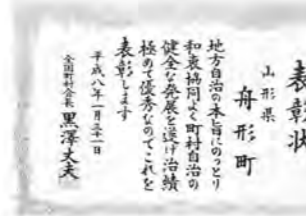 表彰状
山形県
舟形町
地方自治の本旨にのっとり
和衷協同よく町村自治の
健全な発展を遂げ治績
極めて優秀なのでこれを
表彰します
平成八年一月三十一日
全国町村会長 黒澤丈夫